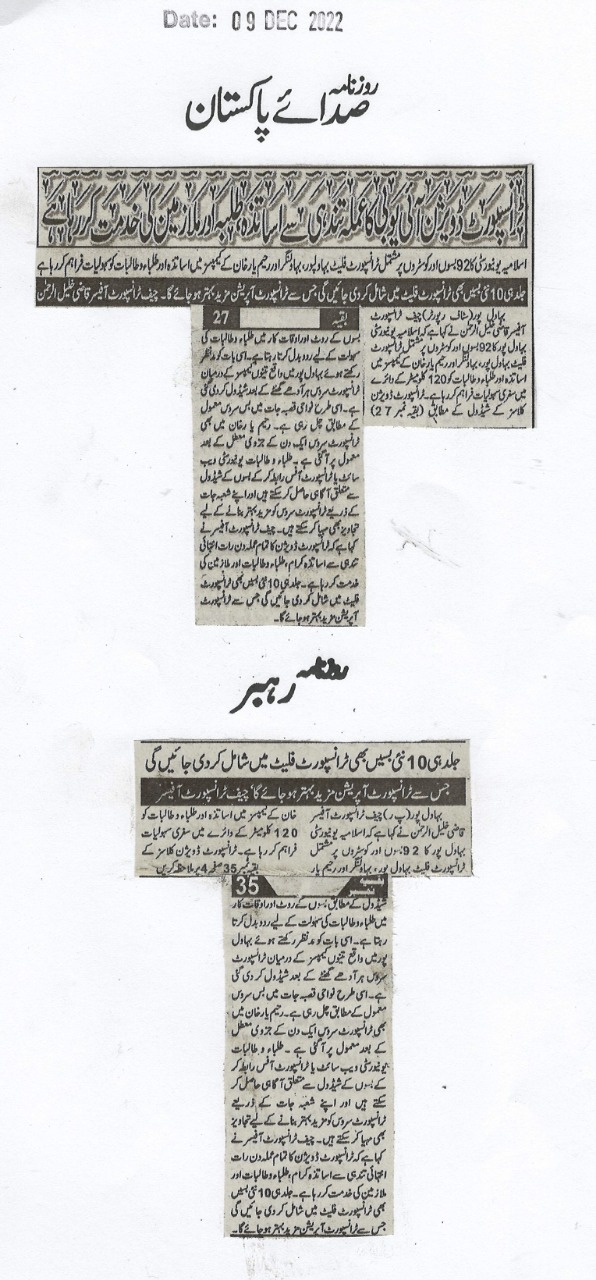 Date: 09 DEC 2022
روزنامہ
صدائے پاکستان
ٹرانسپورٹ ڈویژن آئی یو بی کا عملہ تندہی سے اساتذہ، طلبہ اور ملازمین کی خدمت کر رہا ہے
اسلامیہ یونیورسٹی کا 92 بسوں اور کوسٹروں پر مشتمل ٹرانسپورٹ فلیٹ بہاولپور، بہاولنگر اور رحیم یار خان کے کیمپسز میں اساتذہ اور طلباء و طالبات کو سہولیات فراہم کر رہا ہے
جلد ہی 10 نئی بسیں بھی ٹرانسپورٹ فلیٹ میں شامل کر دی جائیں گی جس سے ٹرانسپورٹ آپریشن مزید بہتر ہو جائے گا۔ چیف ٹرانسپورٹ آفیسر قاضی خلیل الرحمٰن
بہاول پور (سٹاف رپورٹر) چیف ٹرانسپورٹ
آفیسر قاضی خلیل الرحمٰن نے کہا ہے کہ اسلامیہ یونیورسٹی
بہاول پور کا 92 بسوں اور کوسٹروں پر مشتمل ٹرانسپورٹ
فلیٹ بہاول پور، بہاولنگر اور رحیم یار خان کے کیمپسز میں
اساتذہ اور طلباء و طالبات کو 120 کلومیٹر کے دائرے
میں سفری سہولیات فراہم کر رہا ہے۔ ٹرانسپورٹ ڈویژن
کلاسز کے شیڈول کے مطابق (بقیہ نمبر 27)
بقیہ 27
بسوں کے روٹ اور اوقات کار میں طلباء و طالبات کی
سہولت کے لیے ردوبدل کرتا رہتا ہے۔ اسی بات کو مدنظر
رکھتے ہوئے بہاول پور میں واقع تینوں کیمپسز کے درمیان
ٹرانسپورٹ سروس ہر آدھے گھنٹے کے بعد شیڈول کر دی گئی
ہے۔ اسی طرح نواحی قصبہ جات میں بس سروس معمول
کے مطابق چل رہی ہے۔ رحیم یار خان میں بھی
ٹرانسپورٹ سروس ایک دن کے جزوی معطل کے بعد
معمول پر آ گئی ہے۔ طلباء و طالبات یونیورسٹی ویب
سائٹ یا ٹرانسپورٹ آفس رابطہ کر کے بسوں کے شیڈول
سے متعلق آگاہی حاصل کر سکتے ہیں اور اپنے شعبہ جات
کے ذریعے ٹرانسپورٹ سروس کو مزید بہتر بنانے کے لیے
تجاویز بھی مہیا کر سکتے ہیں۔ چیف ٹرانسپورٹ آفیسر نے
کہا ہے کہ ٹرانسپورٹ ڈویژن کا تمام عملہ دن رات انتہائی
تندہی سے اساتذہ کرام، طلباء و طالبات اور ملازمین کی
خدمت کر رہا ہے۔ جلد ہی 10 نئی بسیں بھی ٹرانسپورٹ
فلیٹ میں شامل کر دی جائیں گی جس سے ٹرانسپورٹ
آپریشن مزید بہتر ہو جائے گا۔
روزنامہ
رہبر
جلد ہی 10 نئی بسیں بھی ٹرانسپورٹ فلیٹ میں شامل کر دی جائیں گی
جس سے ٹرانسپورٹ آپریشن مزید بہتر ہو جائے گا، چیف ٹرانسپورٹ آفیسر
بہاول پور (پ ر) چیف ٹرانسپورٹ آفیسر
قاضی خلیل الرحمٰن نے کہا ہے کہ اسلامیہ یونیورسٹی
بہاول پور کا 92 بسوں اور کوسٹروں پر مشتمل
ٹرانسپورٹ فلیٹ بہاول پور، بہاولنگر اور رحیم یار
خان کے کیمپسز میں اساتذہ اور طلباء و طالبات کو
120 کلومیٹر کے دائرے میں سفری سہولیات
فراہم کر رہا ہے۔ ٹرانسپورٹ ڈویژن کلاسز کے
بقیہ نمبر 35 صفحہ 4 پر ملاحظہ کریں
بقیہ نمبر 35
شیڈول کے مطابق بسوں کے روٹ اور اوقات کار
میں طلباء و طالبات کی سہولت کے لیے ردوبدل کرتا
رہتا ہے۔ اسی بات کو مدنظر رکھتے ہوئے بہاول
پور میں واقع تینوں کیمپسز کے درمیان ٹرانسپورٹ
سروس ہر آدھے گھنٹے کے بعد شیڈول کر دی گئی
ہے۔ اسی طرح نواحی قصبہ جات میں بس سروس
معمول کے مطابق چل رہی ہے۔ رحیم یار خان میں
بھی ٹرانسپورٹ سروس ایک دن کے جزوی معطل
کے بعد معمول پر آ گئی ہے۔ طلباء و طالبات
یونیورسٹی ویب سائٹ یا ٹرانسپورٹ آفس رابطہ کر
کے بسوں کے شیڈول سے متعلق آگاہی حاصل کر
سکتے ہیں اور اپنے شعبہ جات کے ذریعے
ٹرانسپورٹ سروس کو مزید بہتر بنانے کے لیے تجاویز
بھی مہیا کر سکتے ہیں۔ چیف ٹرانسپورٹ آفیسر نے
کہا ہے کہ ٹرانسپورٹ ڈویژن کا تمام عملہ دن رات
انتہائی تندہی سے اساتذہ کرام، طلباء و طالبات اور
ملازمین کی خدمت کر رہا ہے۔ جلد ہی 10 نئی بسیں
بھی ٹرانسپورٹ فلیٹ میں شامل کر دی جائیں گی
جس سے ٹرانسپورٹ آپریشن مزید بہتر ہو جائے گا۔